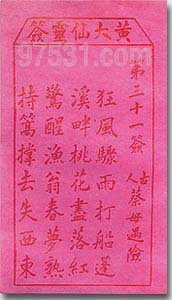 黃大仙靈簽
97531.com
第三十一簽
古人
蔡母遇險
狂風驟雨打船篷
溪畔桃花盡落紅
驚醒漁翁春夢熟
持篙撐去失西東